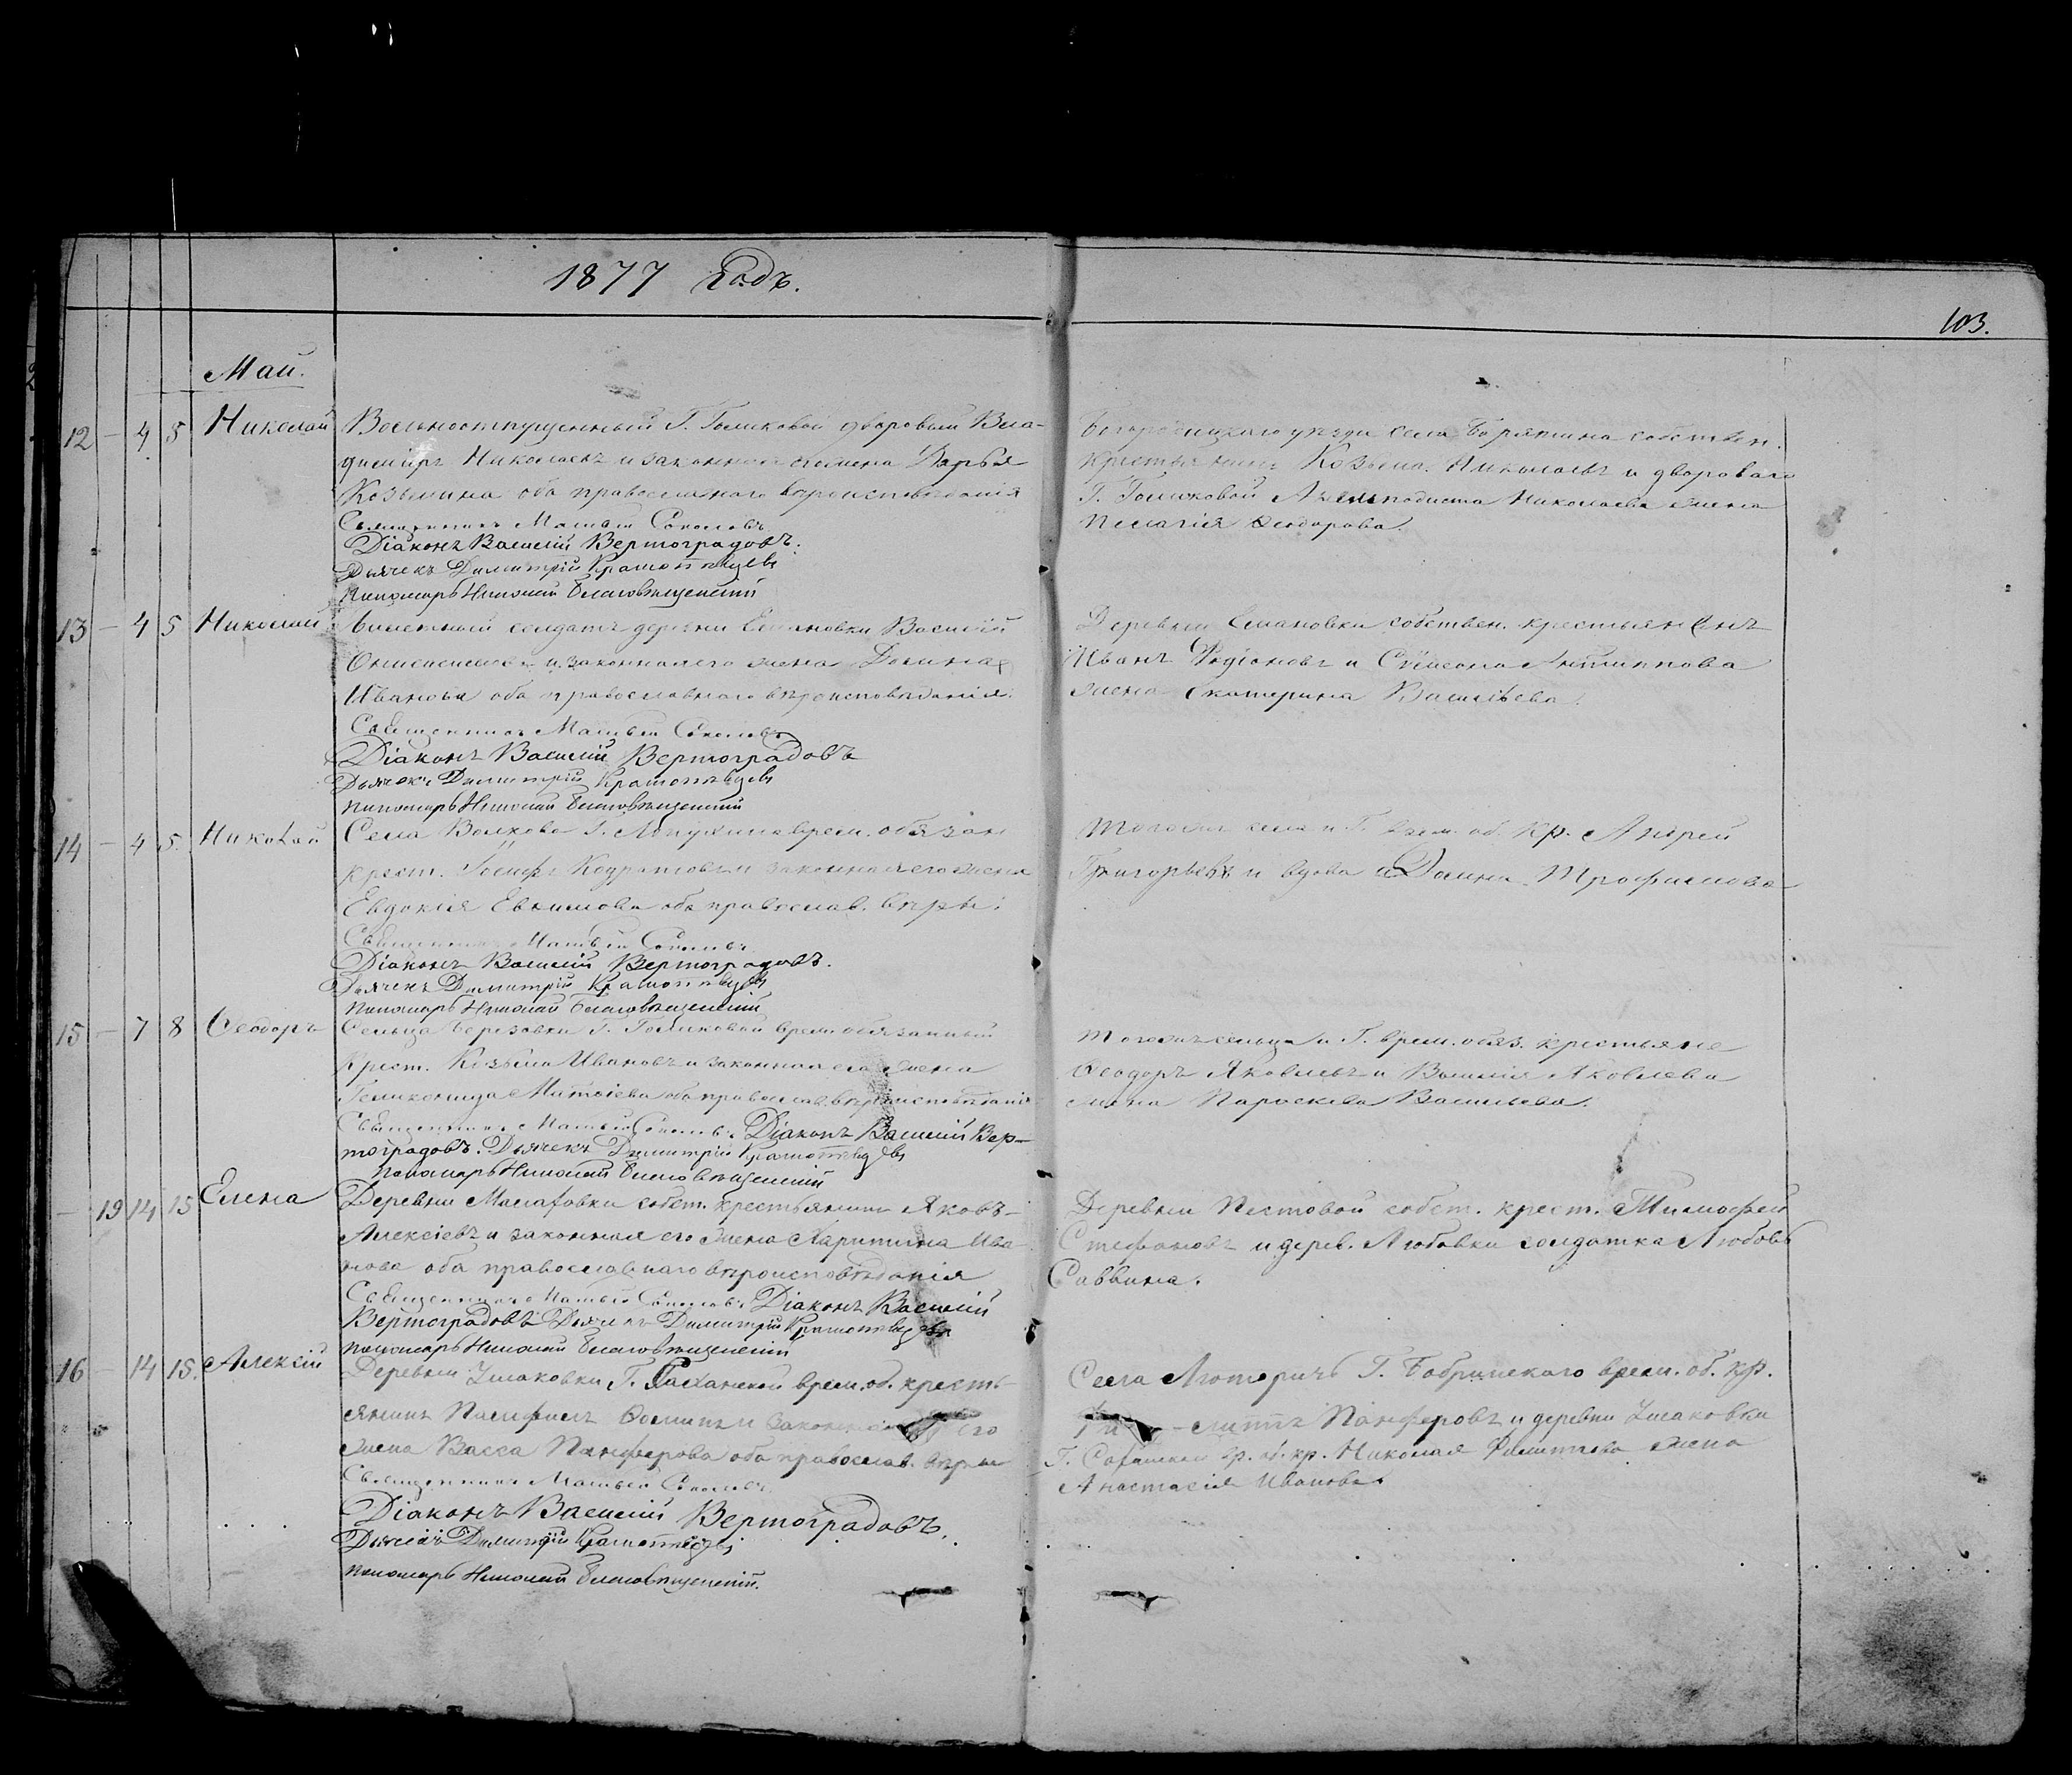 1877 Годъ.
103.
Май.
12 – 4 5 Николай Вольноотпущенный Г. Голиковой дворовый Вла-
димiръ Николаевъ и законная его жена Дарья
Козьмина оба православнаго вѣроисповѣданiя
Священникъ Матвѣй Соколовъ
Дiаконъ Василiй Вертоградовъ.
Дьячекъ Димитрiй
Пономарь Николай Благовѣщенскiй
Богородицкаго уѣзда села Борятина собствен.
крестьянинъ Козьма Николаевъ и двороваго
Г. Голиковой Николаева жена
Пелагiя Ѳеодорова.
13 – 4 5 Николай Билетный солдатъ деревни Василiй
и законная его жена Домна
Иванова оба православнаго вѣроисповѣданiя.
Священникъ Матвѣй Соколовъ
Дiаконъ Василiй Вертоградовъ
Дьячекъ Димитрiй
Пономарь Николай Благовѣщенскiй
Деревни собствен. крестьянинъ
Иванъ Родiоновъ и Симеона Антиппова
жена Екатерина Васильева.
14 – 4 5. Николай Села Волкова Г. Лопухина врем. обязан
крест. Iосифъ Кодратовъ и законная его жена
Евдокiя Евфимова оба православ. вѣры.
Священникъ Матвѣй Соколовъ
Дiаконъ Василiй Вертоградовъ.
Дьячекъ Димитрiй
Пономарь Николай Благовѣщенскiй
Тогожъ села и Г. врем. об. кр. Андрей
Григорьевъ и вдова Домна Трофимова
15 – 7 8 Ѳеодоръ Сельца Березовки Г. Голиковой врем. обязанный
Крест. Козьма Ивановъ и законная его жена
оба православ. вѣроисповѣданiя
Священникъ Матвѣй Соколовъ Дiаконъ Василiй Вер-
тоградовъ. Дьячекъ Димитрiй
Пономарь Николай Благовѣщенскiй
Тогожъ сельца и Г. врем. обяз. крестьяне
Ѳеодоръ Яковлевъ и Василiя Яковлева
жена Параскева Васильева.
– 19 14 15 Елена Деревни собст. крестьянинъ Яковъ
Алексiевъ и законная его жена Харитина Ива-
нова оба православнаго вѣроисповѣданiя
Священникъ Матвѣй Соколовъ Дiаконъ Василiй
Вертоградовъ Дьячекъ Димитрiй
Пономарь Николай Благовѣщенскiй
Деревни собст. крест. Тимофей
Стефановъ и дерев. Любовки солдатка Любовь
Саввина.
16 – 14 15. Алексiй Деревни Г. врем. об. кресть-
янинъ Памфилъ Ѳоминъ и законная его
жена Васса Панферова оба православ. вѣры
Священникъ Матвѣй Соколовъ
Дiаконъ Василiй Вертоградовъ.
Дьячекъ Димитрiй
Пономарь Николай Благовѣщенскiй.
Села Люторичъ Г. Бобринскаго врем. об. кр.
Панферовъ и деревни
Г. вр. об. кр. Николая жена
Анастасiя Иванова